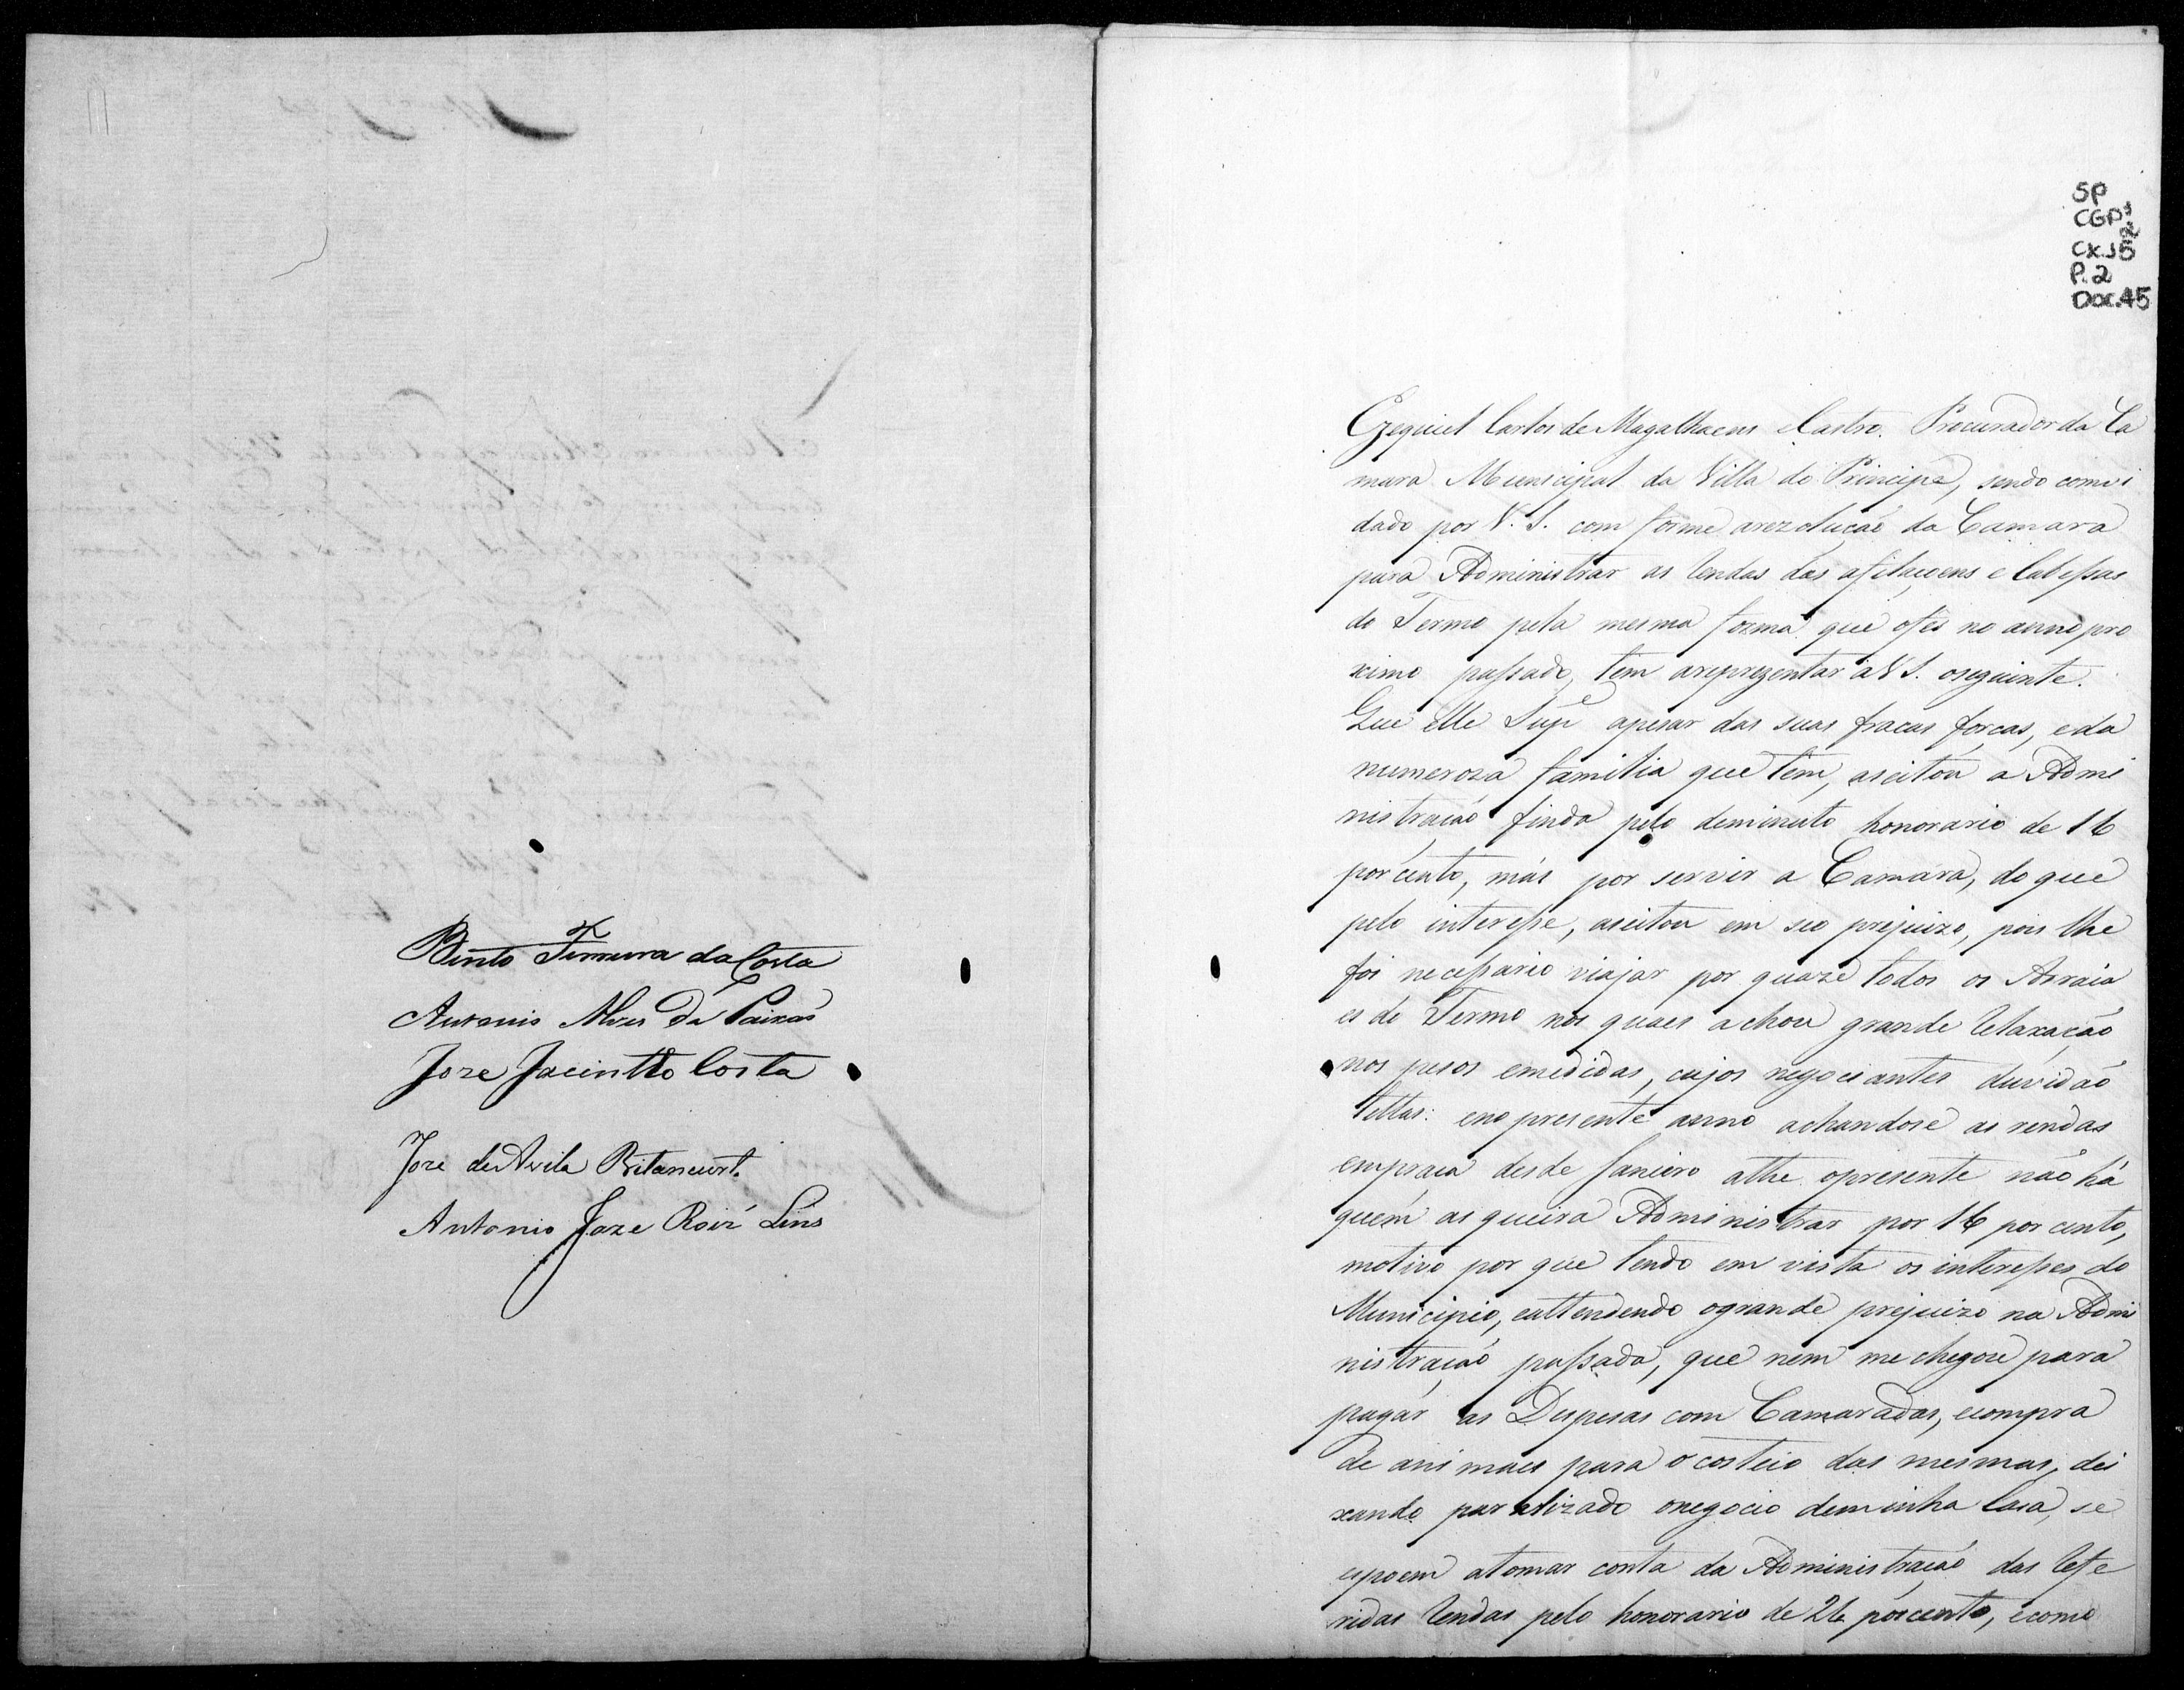 Bento Ferreira da Costa
Antonio Alves da Paixaõ
Joze Jacintho Costa
Joze de Avila Bitancurt.
Antonio Joze Roiz' Lins
SP
CGP1
Cx.15
2
P.2
Doc.45
Ezequiel Carlos de Magalhaens eCastro. Procurador da Ca
mara Municipal da Villa do Principe, sendo convi
dado por V. S. com forme arezolução da Camara
para Administrar as Rendas das afilaçoens e Cabessas
do Termo pela mesma forma que ofes no anno pro
ximo passado, tem areprezentar a V S. oseguinte.
Que elle Supe apesar das suas fracas forcas, eda
numeroza familia que tem, aseitou a Admi
nistração finda pelo deminuto honorario de 16
por cento, mais por servir a Camara, do que
pelo interesse, aseitou em seo prejuizo, pois lhe
foi necessario viajar por quaze todos os Arraia
es do Termo nos quaes achou grande relaxação
nos pesos emedidas, cujos negociantes duvidão
tellas: eno presente anno achandose as rendas
empraca desde Janiero athe opresente não há
quem as queira Administrar por 16 por cento,
motivo por que tendo em vista os interesses do
Municipio, eattendendo ogrande prejuizo na Admi
nistração passada, que nem me chegou para
pagar as Despesas com Camaradas, ecompra
de animaes para o costeio das mesmas, dei
xando paralizado onegocio deminha Casa, se
espoem atomar conta da Administração das Refe
ridas Rendas pelo honorario de 26 porcento, ecomo